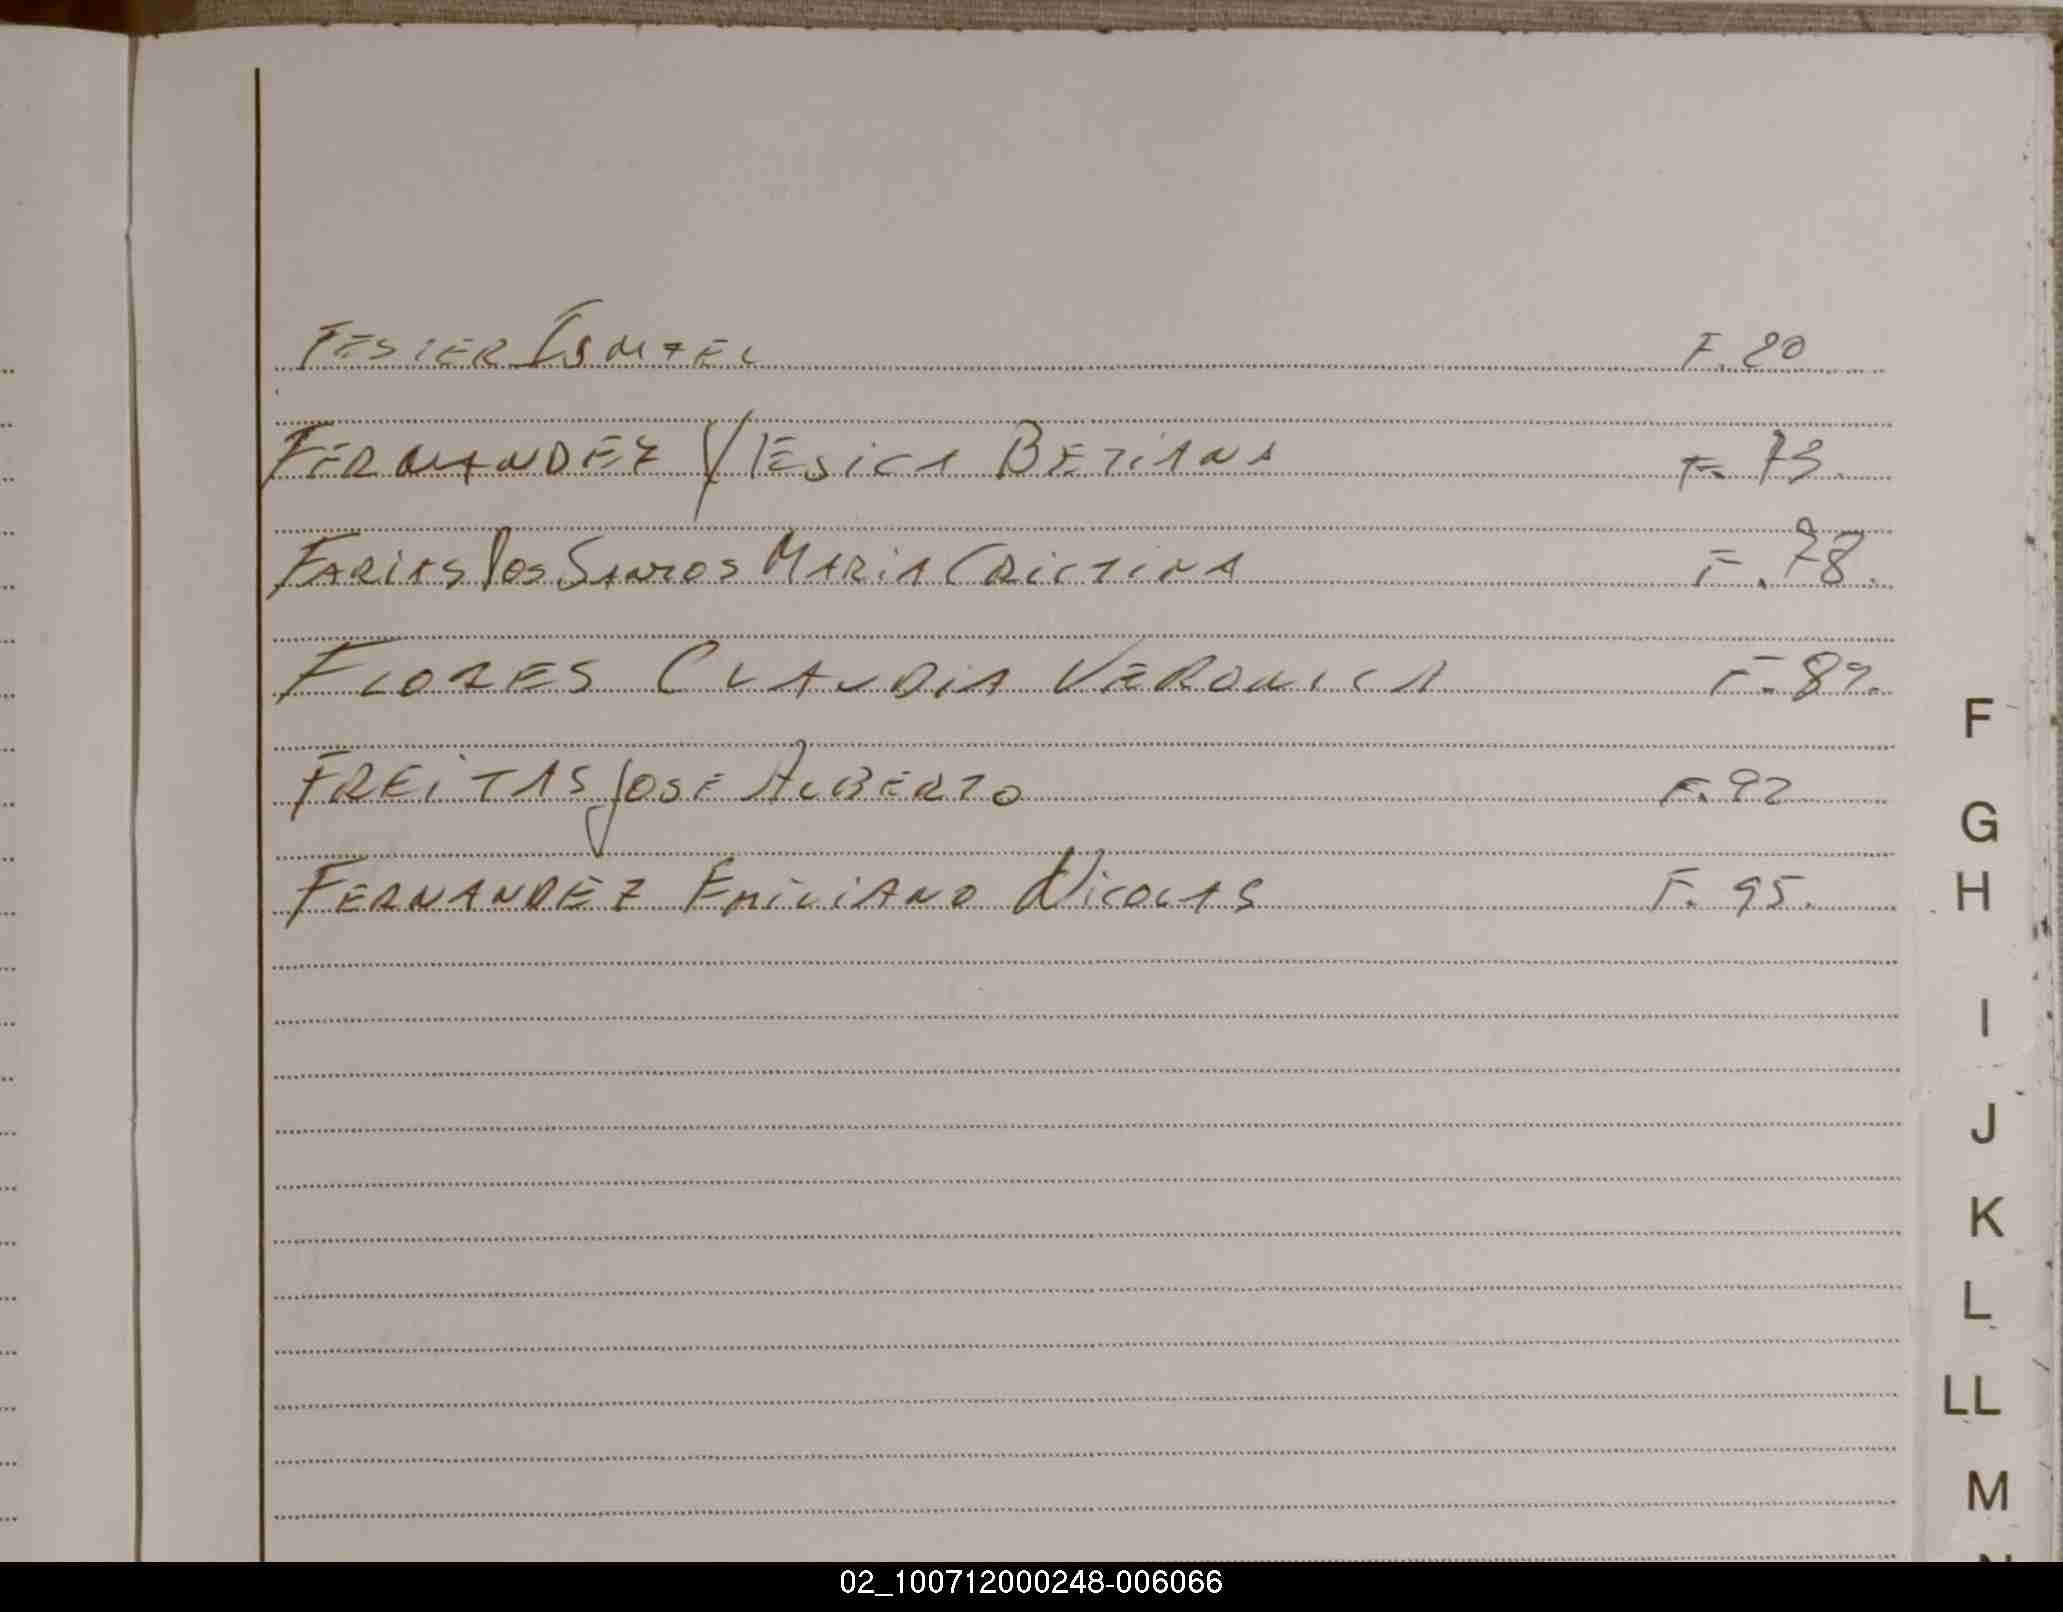 FESIER ISMAEL F. 20
FERNANDEZ YESICA BETIANA F. 73.
FARIAS DOS SANTOS MARIA CRICTINA F. 78.
FLORES CLAUDIA VERONICA F. 89.
FREITAS JOSE ALBERTO F. 92
FERNANDEZ EMILIANO NICOLAS F. 95.
F
G
H
I
J
K
L
LL
M
02_100712000248-006066